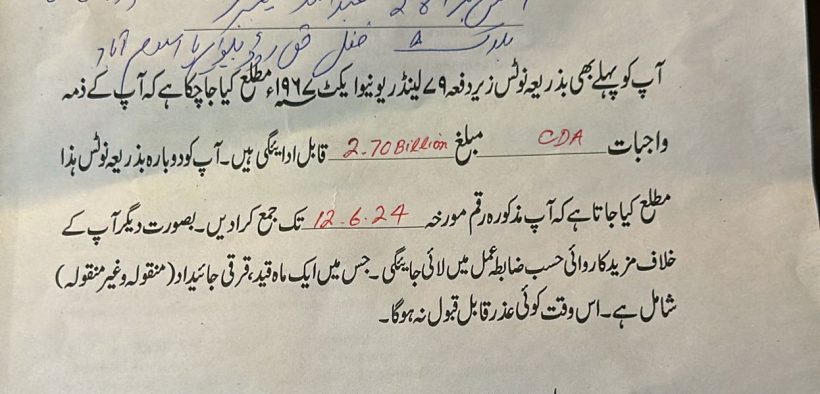 بلاک A فضل حق روڈ بلیو ایریا اسلام آباد
آپ کو پہلے بھی بذریعہ نوٹس زیر دفعہ ۷۹ لینڈ ریونیو ایکٹ ۱۹۶۷ء مطلع کیا جا چکا ہے کہ آپ کے ذمہ
واجبات CDA مبلغ 2.70 Billion قابل ادائیگی ہیں۔ آپ کو دوبارہ بذریعہ نوٹس ہذا
مطلع کیا جاتا ہے کہ آپ مذکورہ رقم مورخہ 12.6.24 تک جمع کرا دیں۔ بصورت دیگر آپ کے
خلاف مزید کاروائی حسب ضابطہ عمل میں لائی جائیگی۔ جس میں ایک ماہ قید، قرقی جائیداد (منقولہ وغیر منقولہ)
شامل ہے۔ اس وقت کوئی عذر قابل قبول نہ ہوگا۔